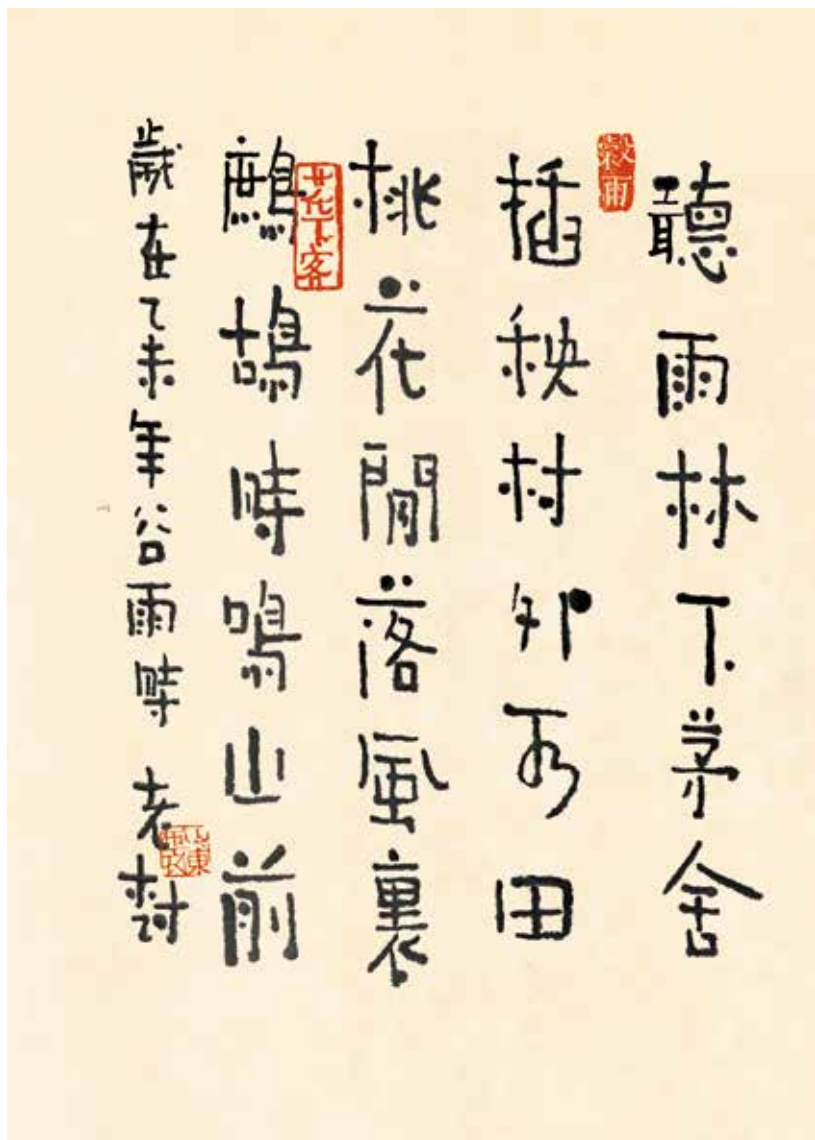 聽雨林下茅舍
穀雨
插秧村外田
桃花閒落風裏
花下客
鷓鴣時鳴山前
歲在乙未年谷雨時 老樹